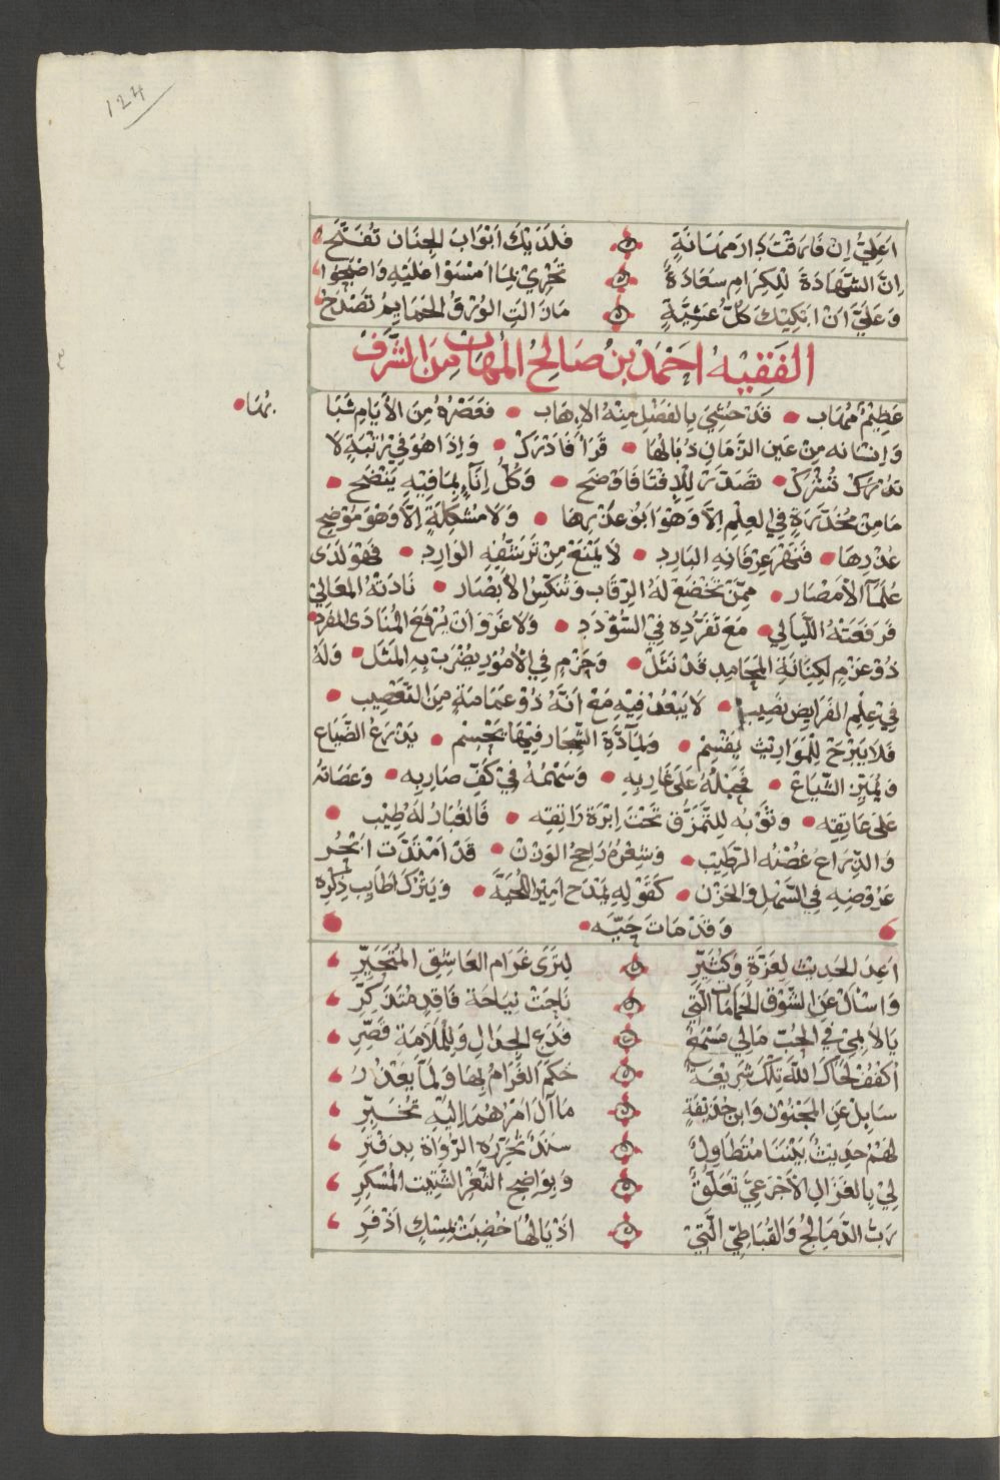 124
اَعَلِيُّ اِن فَارَقْتَ دَارَ مَهَانَةٍ ۞ فَلَدَيْكَ اَبْوَابَ الجِنَان تُفَتَّحُ
اِنَّ الشَّهَادَةَ لِلْكِرَامِ سَعَادَةٌ ۞ تَجْرِيْ بِمَا اَمْسَوْا عَلَيْهِ وَاضْحَوْا
وَعَلَيَّ اَنْ اَبْكِيْكَ كُلَّ عَشِيَّةٍ ۞ مَا دَامَتِ الوُرْقُ الحَمَايِمُ تَصْدَحُ
الفَقِيْهُ اَحْمَدُ بْنُ صَالِحُ المُهَاب مِنَ الشَّرَفْ
عَظِيْمٌ مُهَاب • قَدْ حُشِيَ بِالفَضْلِ مِنْهُ الاِهَاب • فَعَضَّهُ مِنَ الأَيَامِ شَبَا
نُهَا •
وَاِنسَانه مِنْ عَين الزَّمَانِ ذُبَالُهَا • قَرَأَ فَادْرَكْ • وَاِذَا هُوَ فِيْ رُتْبَةٍ لَا
تُدْرَكْ تُشْرَكْ • تَصَدَّرَ لِلْاِفْتَا فَاَوْضَح • وَكُلُّ اِنَآءٍ بِمَا فِيْهِ يَنْضَح •
مَا مِنْ مُخَدَّرَةٍ فِي العِلْمِ اِلَّا وَهُوَ اَبُوعُذْرهَا • وَلَا مُشْكِلَةٍ اِلَّا وَهُوَ مُوْضِح
عُذْرِهَا • فَنَهْرُ عِرْفَانِهِ البَارِد • لَا يَمْنَعُ مِنْ تَرَشُّفِهِ الوَارِد • فَهُوَ لَدَى
عُلَمَآ الأَمْصَار • مِمَّنْ تَخْضَعُ لَهُ الرِّقَاب وَتُنَكَّسُ الأَبْصَار • نَادَتْهُ المَعَالِيْ
فَرَفَعَتْهُ اللَّيَالِي • مَعَ تَفَرُّدِهِ فِي السُّؤْدَدِ • وَلَا غَرْوَ اَنْ يُرْفَعَ المُنَادَى المُفْرَد •
ذُوْ عَزْمٍ لِكِنَانَةِ المَحَامِدِ قَدْ نَثَلْ • وَحَزْمٍ فِي الأُمُوْرِ يُضْرَبُ بِهِ المَثَل • وَلَهُ
فِيْ عِلْمِ الفَرَايِضِ نَصِيْب • لَا يَبْعُدُ فِيْهِ مَعْ اَنَّهُ ذُوْ عَمَامَةٍ مِنَ التَّعْصِيب •
فَلَا يَبْرَحْ لِلْمَوَارِيْث يَقْسِمْ • وَلِمَآدَّةِ الشِّجَار فِيْهَا يَحْسِمْ • يَذْرَعُ الضِّيَاع
وَيُمَيِّزُ الشِّيَاعْ • فَحَبْلُهُ عَلَى غَارِبِهِ • وَسَهْمُهُ فِيْ كَفِّ ضَارِبِه • وَعَصَاتُهُ
عَلَى عَاتِقِه • وَثَوْبُه لِلتَّمَزُّق تَحْتَ اِبْرَة رَاتِقِه • فَالغُبَارُ لَهُ طِيْب •
وَالذِّرَاعُ غُصْنُه الرَّطِيْب • وَشِعْرُهُ رَاجِحُ الوَزْن • قَدْ اَمْتَدَّت اَبْحُرُ
عَرُوْضِهِ فِي السَّهْلِ وَالحَزْن • كَقَوْلِهِ يَمْدَح اَمِيْرَ اللُّحَيَّة • وَيَتْرُكُ اَطَايِبَ ذِكْرِه
وَقَدْ مَاتَ حَيَّه •
اَعِدِ الحَدِيْث لِعَزَّةٍ وَكُثَيِّرِ ۞ لِتَرَى غَرَام العَاشِقِ المُتَحَيِّرِ
وَاسْأَلْ عَنِ الشَّوْقِ الحَمَامَات الَّتِي ۞ نَاحَتْ نِيَاحَة فَاقِدٍ مُتَذَكِّرِ
يَا لَائِمِيْ فِي الحُبّ مَالِي مَسْمَعٌ ۞ فَدَعِ الجِدَال وَلِلْمَلَامَةِ قَصِّرِ
اَكْفُفْ لَحَاكَ اللَّهُ تِلْكَ شَرِيْعَةٌ ۞ حَكَمَ الغَرَامُ بِهَا وَلَمَّا يَعْذُرِ
سَايِلْ عَنِ المَجْنُوْن وَابن حُذَيْفَةٍ ۞ مَا آلَ اَمْرُهُمَا اِلَيْهِ تُخَبَّرِ
لَهُمْ حَدِيْثٌ بَيْنَنَا مُتَطَاوِلٌ ۞ سَنَدٌ تُحَرِّرُه الرُّوَاة بِدَفْتَرِ
لِيْ بِالغَزَالِ الأَجْرَعِيِّ تَعَلُّقٌ ۞ وَبِوَاضِحِ الثَّغْرِ الشَّتِيت المُسْكِرِ
رَبّ الدَّمَالِجِ وَالقُبَاطِيّ الَّتِيْ ۞ اَذْيَالُهَا خُضِبَتْ بِمِسْكٍ اَذْفَرِ